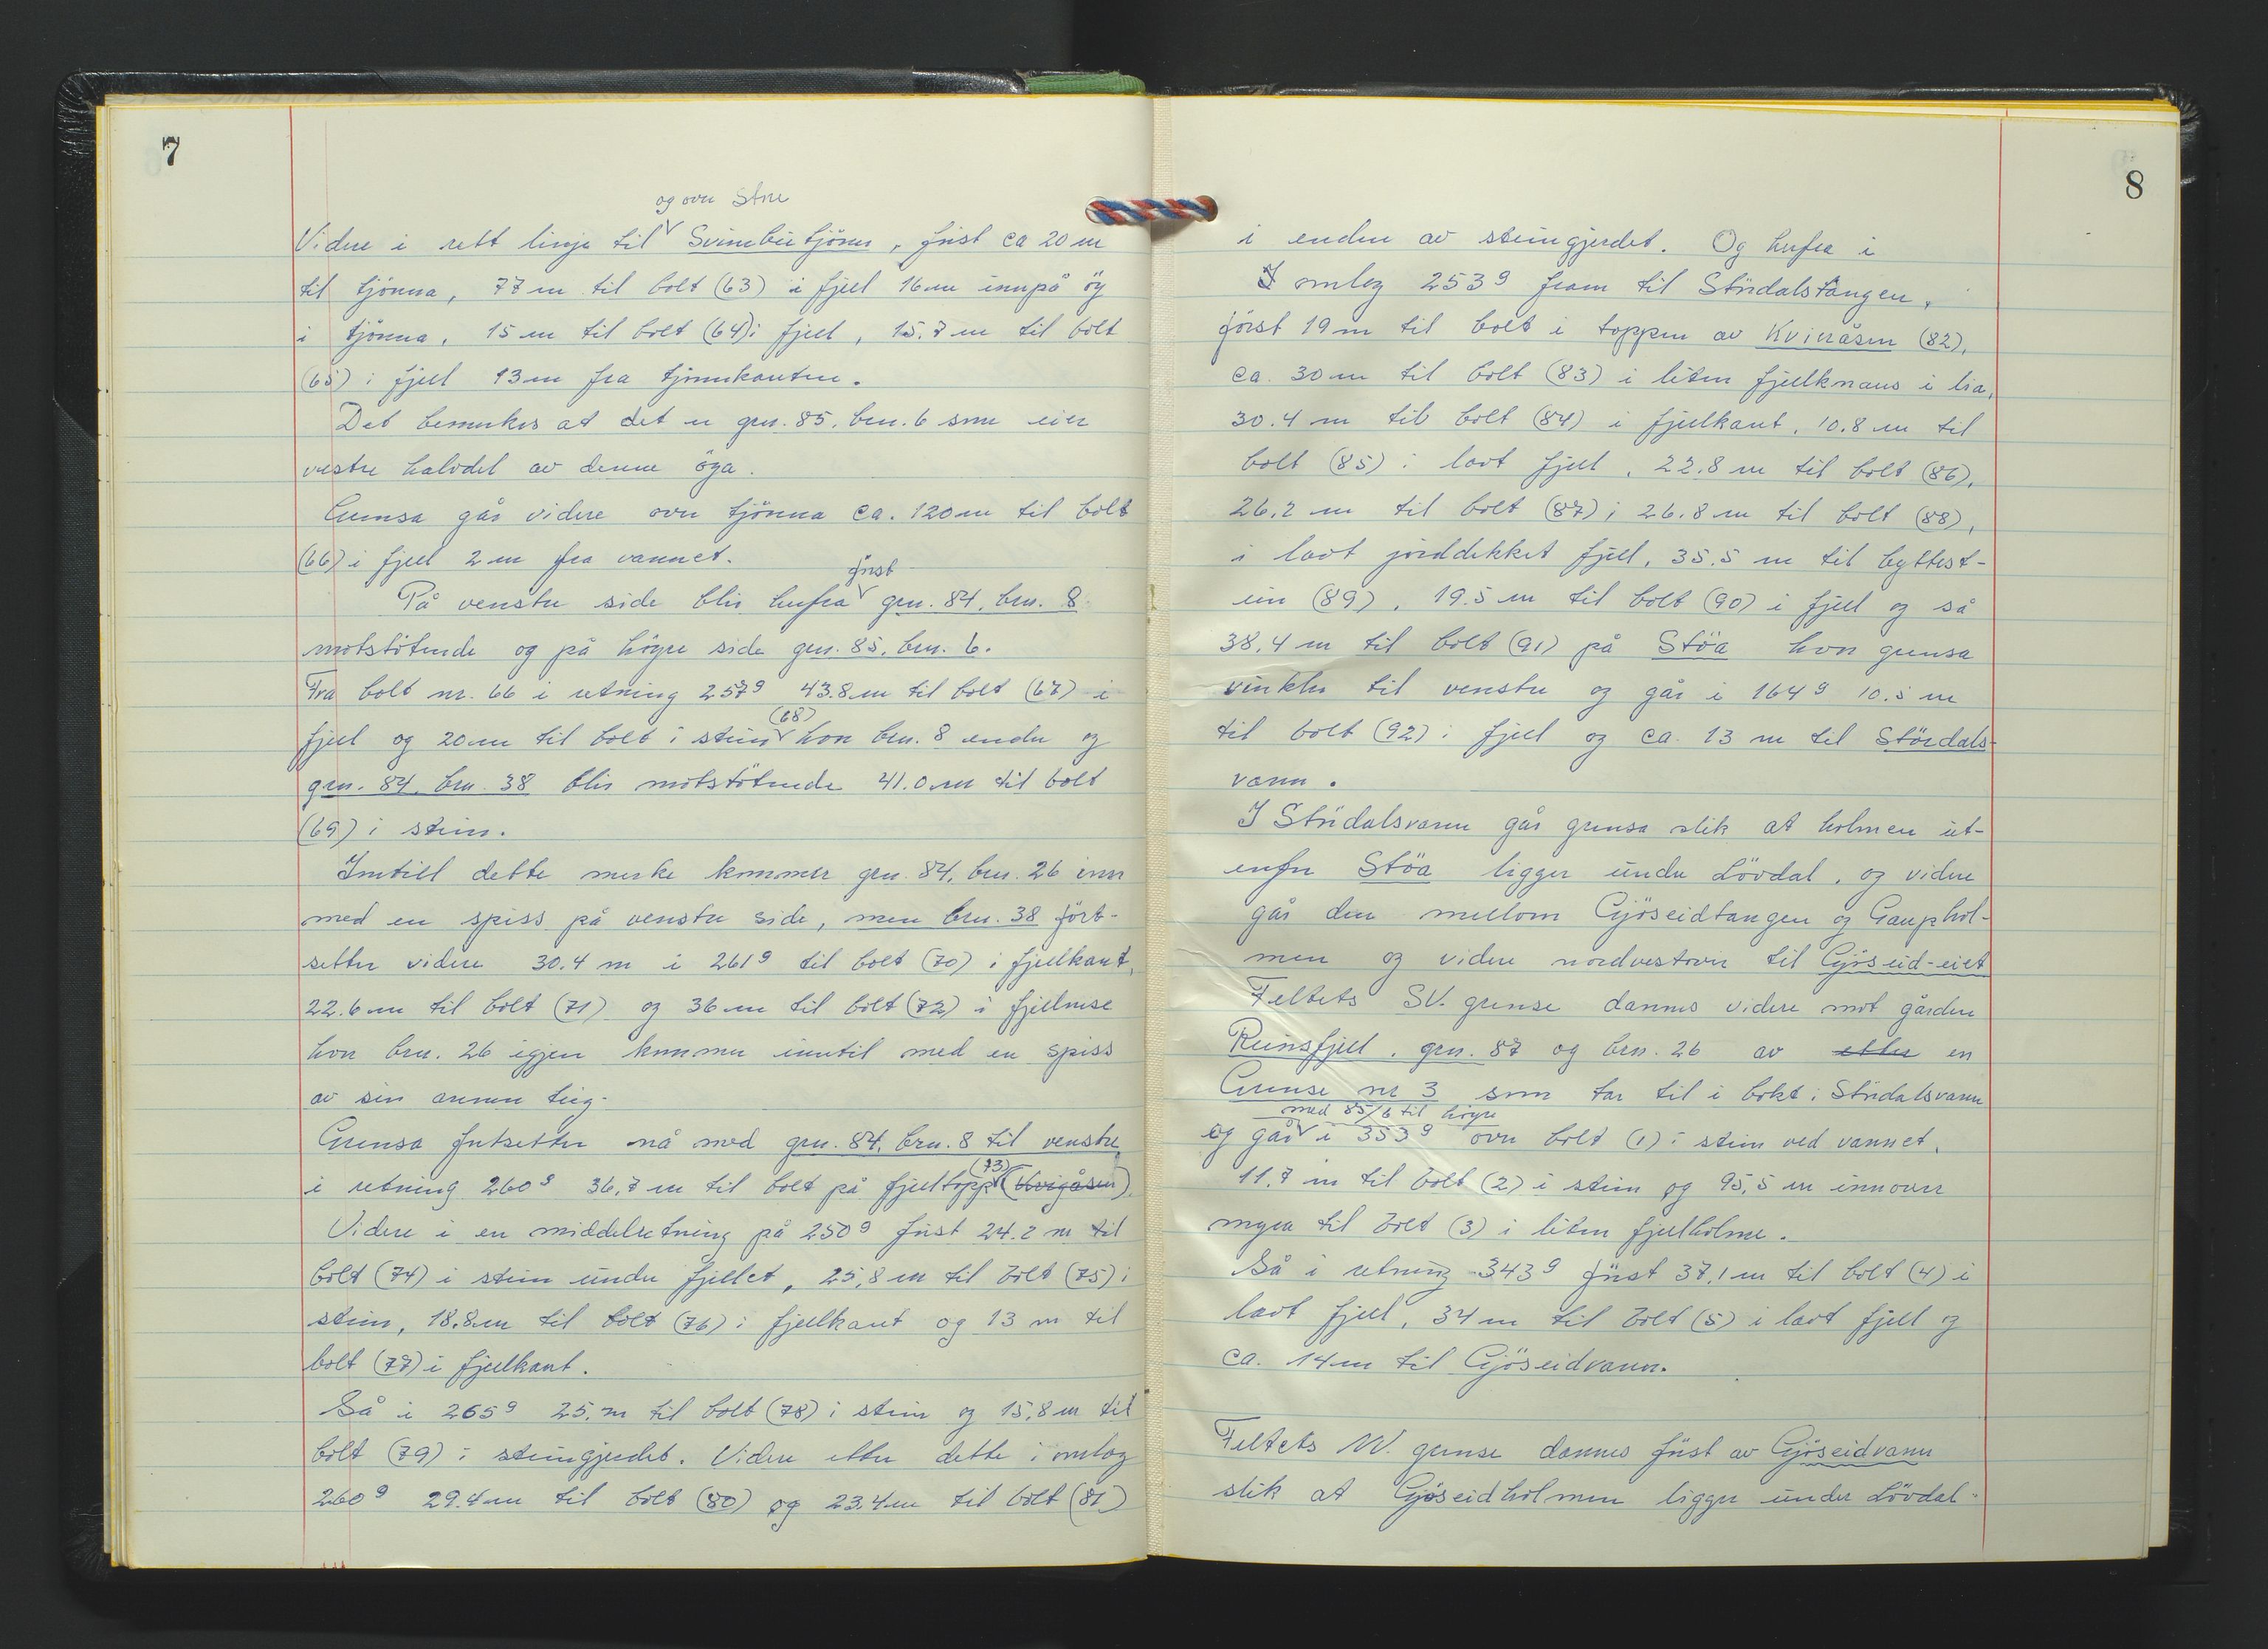 7
og over Store
Videre i rett linje til Svinebutjönn, först ca 20 m
til tjönna, 77 m til bolt (63) i fjell 16 m innpå öy
i tjönna, 15 m til bolt (64) i fjell, 15.7 m til bolt
(65) i fjell 13 m fra tjönnkanten.
Det bemerkes at det er grn. 85, brn. 6 som eier
vestre halvdel av denne öya.
Grensa går videre over tjönna ca. 120 m til bolt
(66) i fjell 2 m fra vannet.
först
På venstre side blir herfra grn. 84, brn. 8
motstötende og på högre side grn. 85, brn. 6.
Fra bolt nr. 66 i retning 257g 43.8 m til bolt (67) i
(68)
fjell og 20 m til bolt i stein hvor brn. 8 ender og
grn. 84, brn. 38 blir motstötende 41.0 m til bolt
(69) i stein.
Inntill dette merke kommer grn. 84, brn. 26 inn
med en spiss på venstre side, men brn. 38 fört-
setter videre 30.4 m i 261g til bolt (70) i fjellkant,
22.6 m til bolt (71) og 36 m til bolt (72) i fjellnese
hvor brn. 26 igjen kommer inntil med en spiss
av sin annen teig.
Grensa fortsetter nå med grn. 84, brn. 8 til venstre
(73)
i retning 260g 36.7 m til bolt på fjelltopp (Kvigåsen).
Videre i en middelretning på 250g först 24.2 m til
bolt (74) i stein under fjellet, 25,8 m til bolt (75) i
stein, 18.8 m til bolt (76) i fjellkant og 13 m til
bolt (77) i fjellkant.
Så i 265g 25. m til bolt (78) i stein og 15,8 m til
bolt (79) i steingjerdet. Videre etter dette i omlag
260g 29.4 m til bolt (80) og 23.4 m til bolt (81)
8
i enden av steingjerdet. Og herfra i
I omlag 253g fram til Stördalstangen,
först 19 m til bolt i toppen av Kvieråsen (82),
ca. 30 m til bolt (83) i liten fjellknaus i lia,
30.4 m til bolt (84) i fjellkant, 10.8 m til
bolt (85) i lavt fjell, 22.8 m til bolt (86),
26.2 m til bolt (87) i 26.8 m til bolt (88),
i lavt jorddekket fjell, 35.5 m til byttest-
ein (89), 19.5 m til bolt (90) i fjell og så
38.4 m til bolt (91) på Stöa hvor grensa
vinkler til venstre og går i 164g 10.5 m
til bolt (92) i fjell og ca. 13 m til Stördals-
vann.
I Stördalsvann går grensa slik at holmen ut-
enfor Stöa ligger under Lövdal, og videre
går den mellom Gjöseidtangen og Gauphol-
men og videre nordvestover til Gjöseid-eiet
Feltets SV. grense dannes videre mot gården
Reinsfjell, grn. 87 og brn. 26 av etter en
Grense nr 3 som tar til i bekt i Stördalsvann
med 85/6 til högre
og går i 353g over bolt (1) i stein ved vannet,
11.7 m til bolt (2) i stein og 95,5 m innover
myra til bolt (3) i liten fjellholme.
Så i retning 343g först 37,1 m til bolt (4) i
lavt fjell, 34 m til bolt (5) i lavt fjell og
ca. 14 m til Gjöseidvann.
Feltets NV. grense dannes först av Gjöseidvann
slik at Gjöseidholmen ligger under Lövdal-